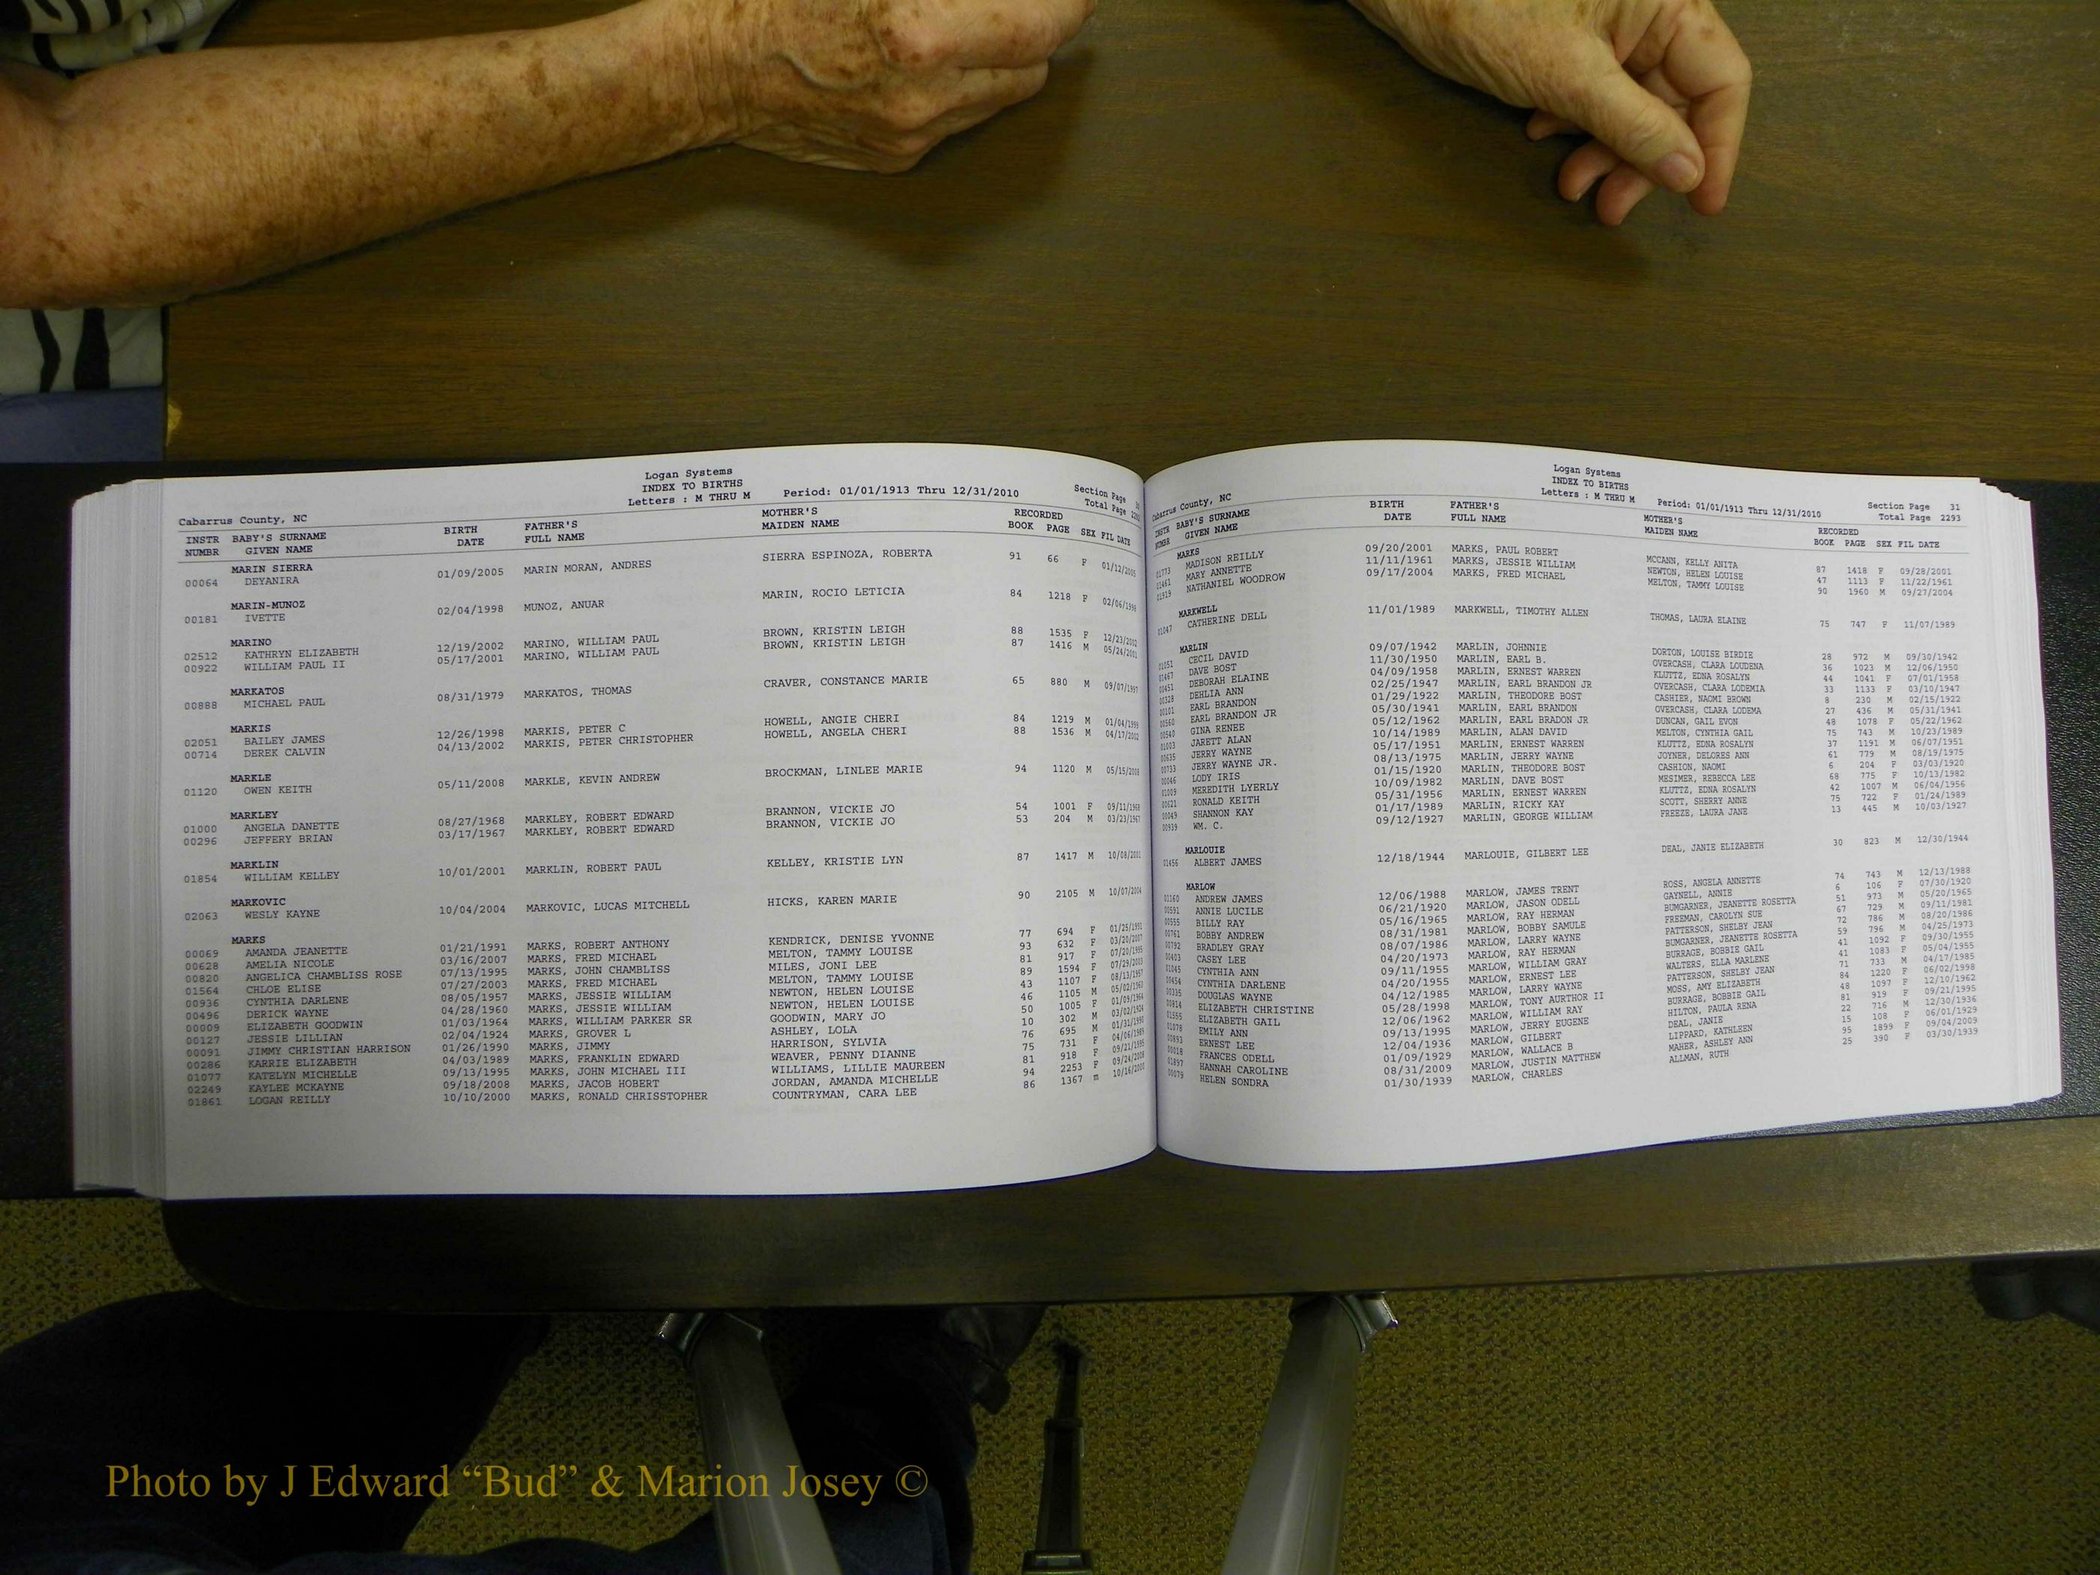 Logan Systems
INDEX TO BIRTHS
Letters : M THRU M Period: 01/01/1913 Thru 12/31/2010
Section Page 30
Total Page
Cabarrus County, NC
INSTR BABY'S SURNAME BIRTH FATHER'S MOTHER'S RECORDED
NUMBR GIVEN NAME DATE FULL NAME MAIDEN NAME BOOK PAGE SEX FIL DATE
MARIN SIERRA
00064 DEYANIRA 01/09/2005 MARIN MORAN, ANDRES SIERRA ESPINOZA, ROBERTA 91 66 F 01/12/2005
MARIN-MUNOZ
00181 IVETTE 02/04/1998 MUNOZ, ANUAR MARIN, ROCIO LETICIA 84 1218 F 02/06/1998
MARINO
02512 KATHRYN ELIZABETH 12/19/2002 MARINO, WILLIAM PAUL BROWN, KRISTIN LEIGH 88 1535 F 12/23/2002
00922 WILLIAM PAUL II 05/17/2001 MARINO, WILLIAM PAUL BROWN, KRISTIN LEIGH 87 1416 M 05/24/2001
MARKATOS
00888 MICHAEL PAUL 08/31/1979 MARKATOS, THOMAS CRAVER, CONSTANCE MARIE 65 880 M
MARKIS
02051 BAILEY JAMES 12/26/1998 MARKIS, PETER C HOWELL, ANGIE CHERI 84 1219 M 01/04/1999
00714 DEREK CALVIN 04/13/2002 MARKIS, PETER CHRISTOPHER HOWELL, ANGELA CHERI 88 1536 M 04/17/2002
MARKLE
01120 OWEN KEITH 05/11/2008 MARKLE, KEVIN ANDREW BROCKMAN, LINLEE MARIE 94 1120 M 05/15/2008
MARKLEY
01000 ANGELA DANETTE 08/27/1968 MARKLEY, ROBERT EDWARD BRANNON, VICKIE JO 54 1001 F 09/11/1968
00296 JEFFERY BRIAN 03/17/1967 MARKLEY, ROBERT EDWARD BRANNON, VICKIE JO 53 204 M 03/23/1967
MARKLIN
01854 WILLIAM KELLEY 10/01/2001 MARKLIN, ROBERT PAUL KELLEY, KRISTIE LYN 87 1417 M 10/08/2001
MARKOVIC
02063 WESLY KAYNE 10/04/2004 MARKOVIC, LUCAS MITCHELL HICKS, KAREN MARIE 90 2105 M 10/07/2004
MARKS
00069 AMANDA JEANETTE 01/21/1991 MARKS, ROBERT ANTHONY KENDRICK, DENISE YVONNE 77 694 F 01/25/1991
00628 AMELIA NICOLE 03/16/2007 MARKS, FRED MICHAEL MELTON, TAMMY LOUISE 93 632 F 03/20/2007
00820 ANGELICA CHAMBLISS ROSE 07/13/1995 MARKS, JOHN CHAMBLISS MILES, JONI LEE 81 917 F 07/20/1995
01564 CHLOE ELISE 07/27/2003 MARKS, FRED MICHAEL MELTON, TAMMY LOUISE 89 1594 F 07/29/2003
00936 CYNTHIA DARLENE 08/05/1957 MARKS, JESSIE WILLIAM NEWTON, HELEN LOUISE 43 1107 F 08/13/1957
00496 DERICK WAYNE 04/28/1960 MARKS, JESSIE WILLIAM NEWTON, HELEN LOUISE 46 1105 M 05/02/1960
00009 ELIZABETH GOODWIN 01/03/1964 MARKS, WILLIAM PARKER SR GOODWIN, MARY JO 50 1005 F 01/09/1964
00127 JESSIE LILLIAN 02/04/1924 MARKS, GROVER L ASHLEY, LOLA 10 302 M 03/02/1924
00091 JIMMY CHRISTIAN HARRISON 01/26/1990 MARKS, JIMMY HARRISON, SYLVIA 76 695 M 01/31/1990
00286 KARRIE ELIZABETH 04/03/1989 MARKS, FRANKLIN EDWARD WEAVER, PENNY DIANNE 75 731 F 04/06/1989
01077 KATELYN MICHELLE 09/13/1995 MARKS, JOHN MICHAEL III WILLIAMS, LILLIE MAUREEN 81 918 F 09/21/1995
02249 KAYLEE MCKAYNE 09/18/2008 MARKS, JACOB HOBERT JORDAN, AMANDA MICHELLE 94 2253 F 09/24/2008
01861 LOGAN REILLY 10/10/2000 MARKS, RONALD CHRISSTOPHER COUNTRYMAN, CARA LEE 86 1367 m 10/16/2000
Logan Systems
INDEX TO BIRTHS
Letters : M THRU M Period: 01/01/1913 Thru 12/31/2010
Section Page 31
Total Page 2293
Cabarrus County, NC
INSTR BABY'S SURNAME BIRTH FATHER'S MOTHER'S RECORDED
NUMBR GIVEN NAME DATE FULL NAME MAIDEN NAME BOOK PAGE SEX FIL DATE
MARKS
01773 MADISON REILLY 09/20/2001 MARKS, PAUL ROBERT MCCANN, KELLY ANITA 87 1418 F 09/28/2001
01461 MARY ANNETTE 11/11/1961 MARKS, JESSIE WILLIAM NEWTON, HELEN LOUISE 47 1113 F 11/22/1961
01919 NATHANIEL WOODROW 09/17/2004 MARKS, FRED MICHAEL MELTON, TAMMY LOUISE 90 1960 M 09/27/2004
MARKWELL
01047 CATHERINE DELL 11/01/1989 MARKWELL, TIMOTHY ALLEN THOMAS, LAURA ELAINE 75 747 F 11/07/1989
MARLIN
01051 CECIL DAVID 09/07/1942 MARLIN, JOHNNIE DORTON, LOUISE BIRDIE 28 972 M 09/30/1942
01467 DAVE BOST 11/30/1950 MARLIN, EARL B. OVERCASH, CLARA LOUDENA 36 1023 M 12/06/1950
00451 DEBORAH ELAINE 04/09/1958 MARLIN, ERNEST WARREN KLUTTZ, EDNA ROSALYN 44 1041 F 07/01/1958
00328 DEHLIA ANN 02/25/1947 MARLIN, EARL BRANDON JR OVERCASH, CLARA LODEMIA 33 1133 F 03/10/1947
00101 EARL BRANDON 01/29/1922 MARLIN, THEODORE BOST CASHIER, NAOMI BROWN 8 230 M 02/15/1922
00560 EARL BRANDON JR 05/30/1941 MARLIN, EARL BRANDON OVERCASH, CLARA LODEMA 27 436 M 05/31/1941
00540 GINA RENEE 05/12/1962 MARLIN, EARL BRADON JR DUNCAN, GAIL EVON 48 1078 F 05/22/1962
01003 JARETT ALAN 10/14/1989 MARLIN, ALAN DAVID MELTON, CYNTHIA GAIL 75 743 M 10/23/1989
00635 JERRY WAYNE 05/17/1951 MARLIN, ERNEST WARREN KLUTTZ, EDNA ROSALYN 37 1191 M 06/07/1951
00733 JERRY WAYNE JR. 08/13/1975 MARLIN, JERRY WAYNE JOYNER, DELORES ANN 61 779 M 08/19/1975
00046 LODY IRIS 01/15/1920 MARLIN, THEODORE BOST CASHION, NAOMI 6 204 F 03/03/1920
01009 MEREDITH LYERLY 10/09/1982 MARLIN, DAVE BOST MESIMER, REBECCA LEE 68 775 F 10/13/1982
00621 RONALD KEITH 05/31/1956 MARLIN, ERNEST WARREN KLUTTZ, EDNA ROSALYN 42 1007 M 06/04/1956
00049 SHANNON KAY 01/17/1989 MARLIN, RICKY KAY SCOTT, SHERRY ANNE 75 722 F 01/24/1989
00939 WM. C. 09/12/1927 MARLIN, GEORGE WILLIAM FREEZE, LAURA JANE 13 445 M 10/03/1927
MARLOUIE
01456 ALBERT JAMES 12/18/1944 MARLOUIE, GILBERT LEE DEAL, JANIE ELIZABETH 30 823 M 12/30/1944
MARLOW
01160 ANDREW JAMES 12/06/1988 MARLOW, JAMES TRENT ROSS, ANGELA ANNETTE 74 743 M 12/13/1988
00591 ANNIE LUCILE 06/21/1920 MARLOW, JASON ODELL GAYNELL, ANNIE 6 106 F 07/30/1920
00555 BILLY RAY 05/16/1965 MARLOW, RAY HERMAN BUMGARNER, JEANETTE ROSETTA 51 973 M 05/20/1965
00761 BOBBY ANDREW 08/31/1981 MARLOW, BOBBY SAMULE FREEMAN, CAROLYN SUE 67 729 M 09/11/1981
00792 BRADLEY GRAY 08/07/1986 MARLOW, LARRY WAYNE PATTERSON, SHELBY JEAN 72 786 M 08/20/1986
00403 CASEY LEE 04/20/1973 MARLOW, RAY HERMAN BUMGARNER, JEANETTE ROSETTA 59 796 M 04/25/1973
01045 CYNTHIA ANN 09/11/1955 MARLOW, WILLIAM GRAY BURRAGE, BOBBIE GAIL 41 1092 F 09/30/1955
00454 CYNTHIA DARLENE 04/20/1955 MARLOW, ERNEST LEE WALTERS, ELLA MARLENE 41 1083 F 05/04/1955
00335 DOUGLAS WAYNE 04/12/1985 MARLOW, LARRY WAYNE PATTERSON, SHELBY JEAN 71 733 M 04/17/1985
00814 ELIZABETH CHRISTINE 05/28/1998 MARLOW, TONY AURTHOR II MOSS, AMY ELIZABETH 84 1220 F 06/02/1998
01555 ELIZABETH GAIL 12/06/1962 MARLOW, WILLIAM RAY BURRAGE, BOBBIE GAIL 48 1097 F 12/10/1962
01078 EMILY ANN 09/13/1995 MARLOW, JERRY EUGENE HILTON, PAULA RENA 81 919 F 09/21/1995
00893 ERNEST LEE 12/04/1936 MARLOW, GILBERT DEAL, JANIE 22 716 M 12/30/1936
00018 FRANCES ODELL 01/09/1929 MARLOW, WALLACE B LIPPARD, KATHLEEN 15 108 F 06/01/1929
01897 HANNAH CAROLINE 08/31/2009 MARLOW, JUSTIN MATTHEW MAHER, ASHLEY ANN 95 1899 F 09/04/2009
00079 HELEN SONDRA 01/30/1939 MARLOW, CHARLES ALLMAN, RUTH 25 390 F 03/30/1939
Photo by J Edward “Bud” & Marion Josey ©